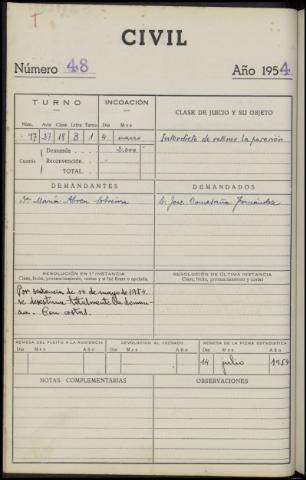 CIVIL
Número 48 Año 1954
TURNO INCOACIÓN CLASE DE JUICIO Y SU OBJETO
Núm. Auto Clase Letra Turno Día Mes
17 27 18 B 1 4 marzo Interdicto de retener la posesión
Demanda 2.000
Cuantía Reconvención
TOTAL
DEMANDANTES DEMANDADOS
Dª María D. José Fernández
RESOLUCIÓN EN 1.ª INSTANCIA RESOLUCIÓN DE ÚLTIMA INSTANCIA
Clase, fecha, pronunciamiento, costas y si fué firme o apelada Clase, fecha, pronunciamiento y costas
Por sentencia de 10 de mayo de 1954
se desestima totalmente la deman-
da. Con costas.
REMESA DEL PLEITO A LA AUDIENCIA DEVOLUCIÓN AL JUZGADO REMESA DE LA FICHA ESTADÍSTICA
Día Mes Año Día Mes Año Día Mes Año
14 julio 1954
NOTAS COMPLEMENTARIAS OBSERVACIONES